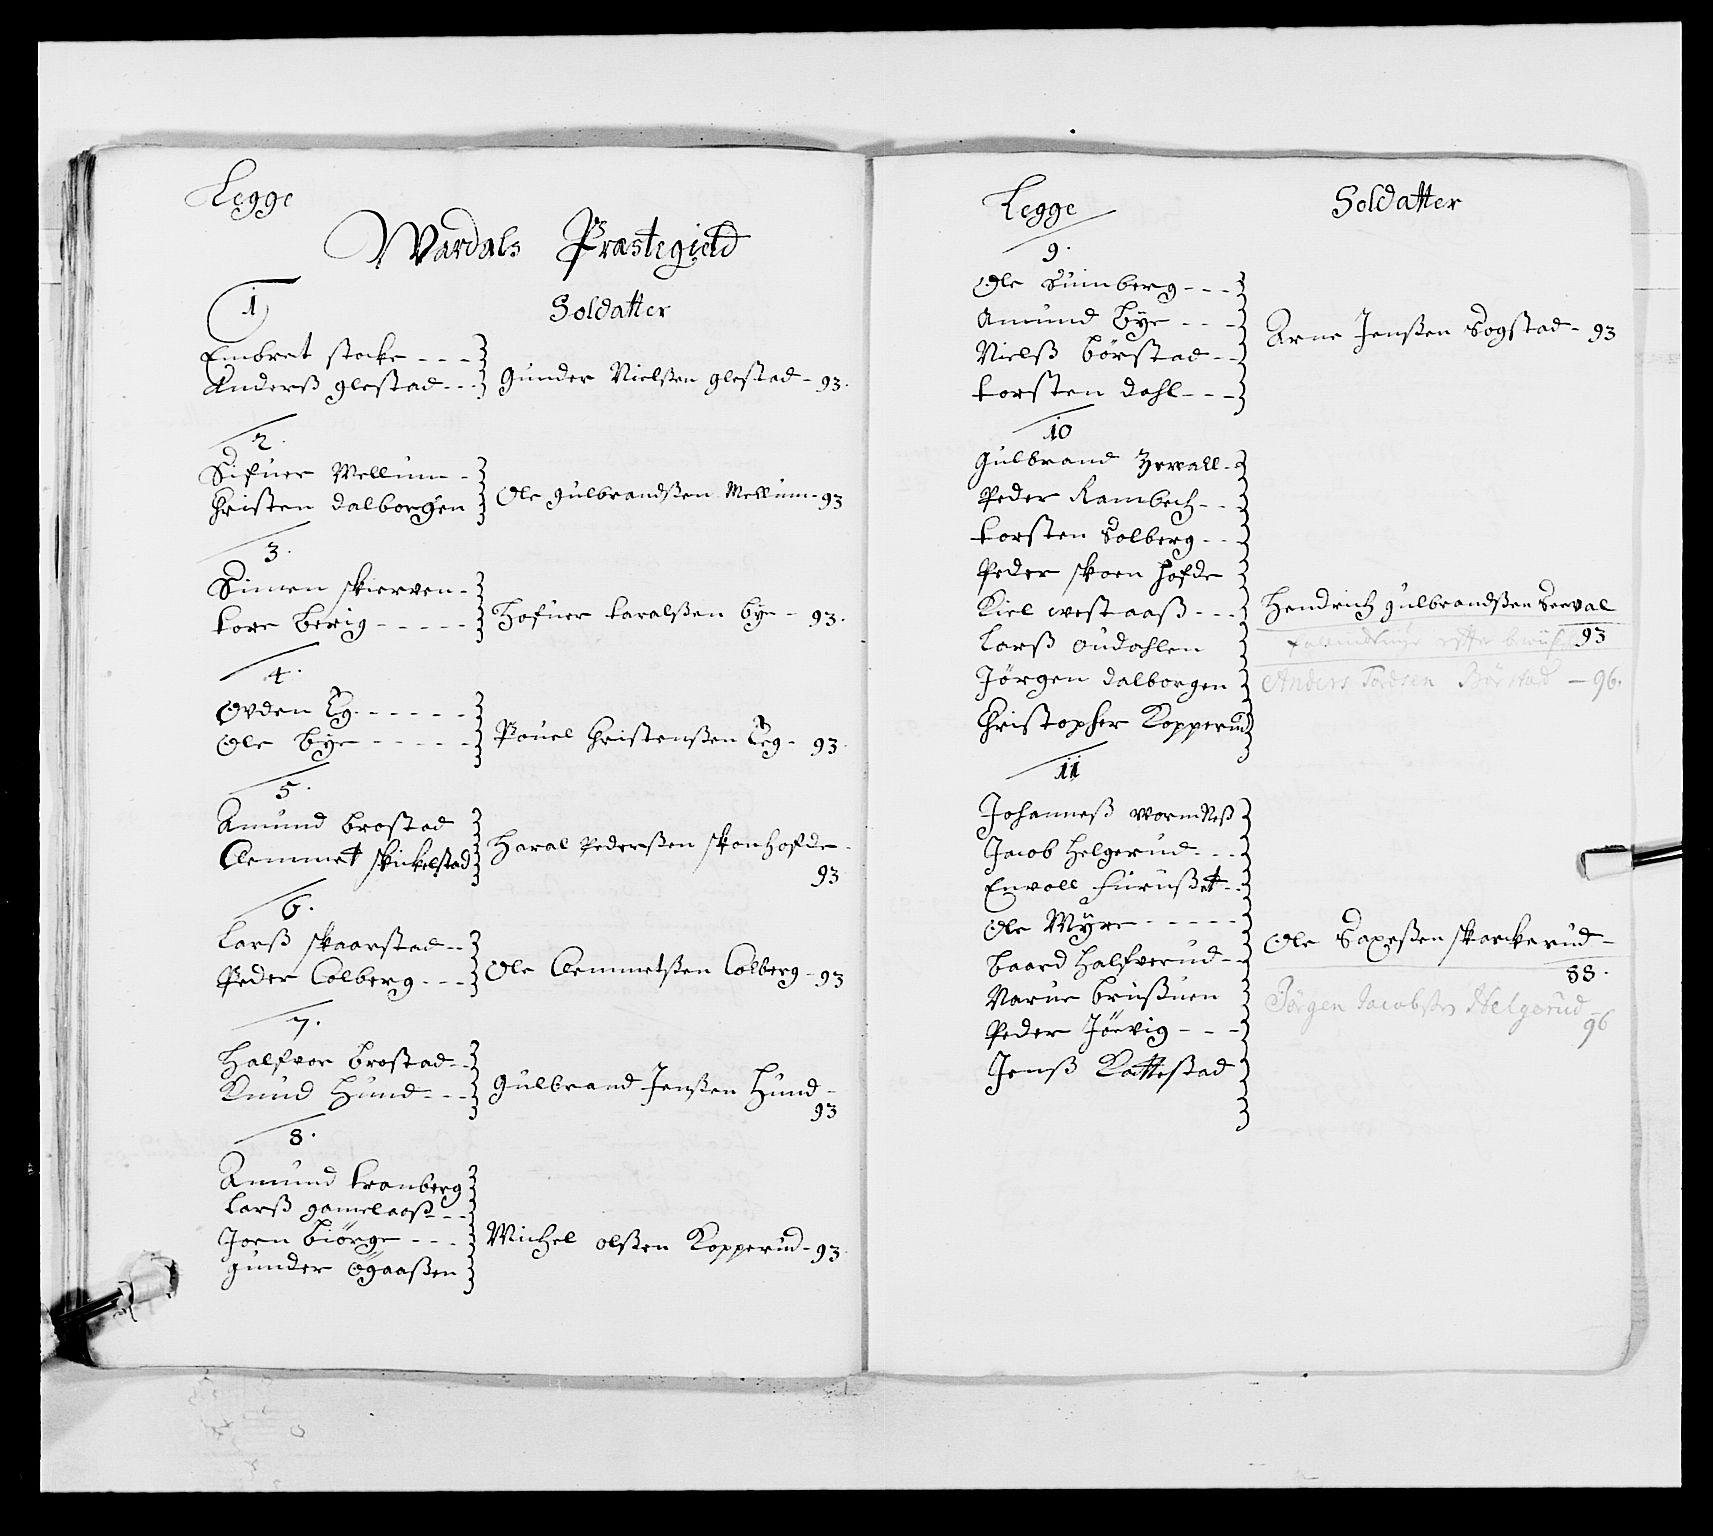 Legge
Wardals Præstegield
1
Soldatter
Embret stocke - - -
Anderß glestad - - -
Gunder Nielßen glestad - 93.
2.
Sifuer Mellum - -
Christen dalborgen
Ole gulbrandßen Mellum - 93
3.
Simen skierven -
tore berig - - - - -
Hofuer taralßen bye - 93.
4.
Ovden Eg - - - - - -
Ole bye - - - - -
Pouel Christenßen Eeg - 93.
5.
Amund brostad
Clemmet skickelstad
Haral Pederßen skonhofde -
93
6.
Larß skaarstad - -
Peder Colberg - - -
Ole Clemmetßen Colberg - 93
7.
Halfvor brostad - -
Knud Hund - - -
Gulbrand Jenßen Hund -
93
8.
Amund tranberg
Larß gamelaaß - -
Joen biørge - - -
gunder øgaaßen
Michel olßen Kopperud - 93.
Legge
Soldatter
9.
Ole Suinberg - - -
Amund bye - - -
Nielß børstad - -
torsten dahl - - -
Arne Jenßen Sogstad - 93
10
Gulbrand -
Peder Rambech - - -
torsten Solberg - - -
Peder skoen hofde
Kiel westaaß - - -
Larß oudahlen
Jørgen dalborgen
Christopher Kopperud
Hendrich gulbrandßen Seeval
93
Anders Tordsen Børstad - 96.
11
Johanneß wormNeß
Jacob Helgerud - - -
Envoll furußet - -
Ole Myre - - - - -
baard Halfverud - -
Narue brußuen
Peder Jøevig - - -
Jenß Kattestad
Ole Saxeßen skarkerud -
88.
Jørgen Jacobsen Helgerud -
96